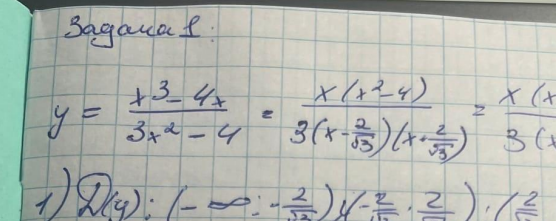 Задача 1:
y = \frac{x^3 - 4x}{3x^2 - 4} = \frac{x(x^2 - 4)}{3(x - \frac{2}{\sqrt{3}})(x + \frac{2}{\sqrt{3}})} = \frac{x(x}{3(x}
1) D(y): (-∞; -\frac{2}{\sqrt{3}}) (-\frac{2}{\sqrt{3}}; \frac{2}{\sqrt{3}}); (\frac{2}{\sqrt{3}}